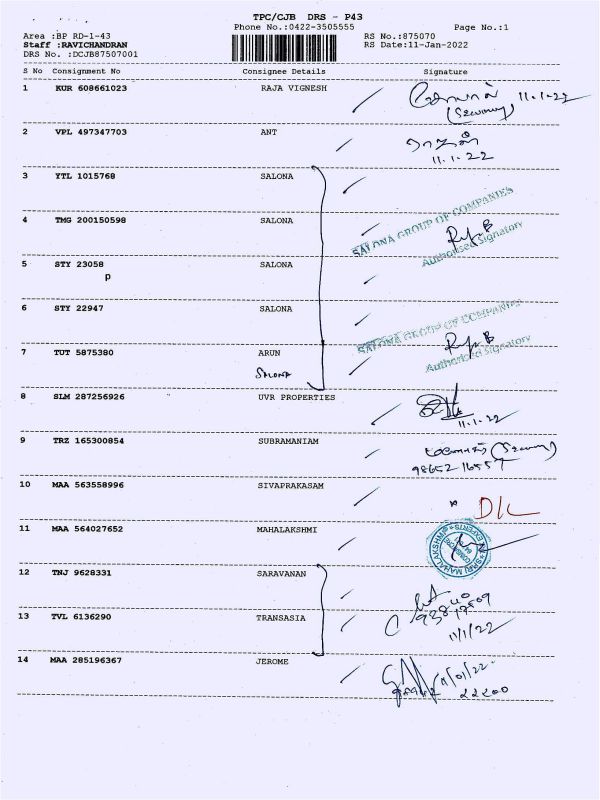 TPC/CJB DRS - P43
Phone No.:0422-3505555 Page No.:1
Area :BP RD-1-43 RS No.:875070
Staff :RAVICHANDRAN RS Date:11-Jan-2022
DRS No. :DCJB87507001
S No Consignment No Consignee Details Signature
1 KUR 608661023 RAJA VIGNESH 11.1.22
2 VPL 497347703 ANT
11.1.22
3 YTL 1015768 SALONA
SALONA GROUP OF COMPANIES
4 TMG 200150598 SALONA
Authorised Signatory
5 STY 23058 SALONA
p
6 STY 22947 SALONA
SALONA GROUP OF COMPANIES
7 TUT 5875380 ARUN
Authorised Signatory
SALONA
8 SLM 287256926 UVR PROPERTIES
11.1.22
9 TRZ 165300854 SUBRAMANIAM
98652 16557
10 MAA 563558996 SIVAPRAKASAM
D/L
11 MAA 564027652 MAHALAKSHMI
SHRI MAHALAKSHMI EVENTS
12 TNJ 9628331 SARAVANAN
13 TVL 6136290 TRANSASIA
11/1/22
14 MAA 285196367 JEROME
11/01/22